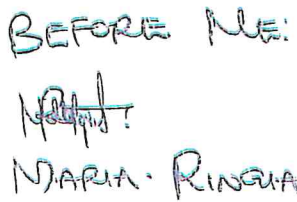 BEFORE ME:
MARIA RINGUA